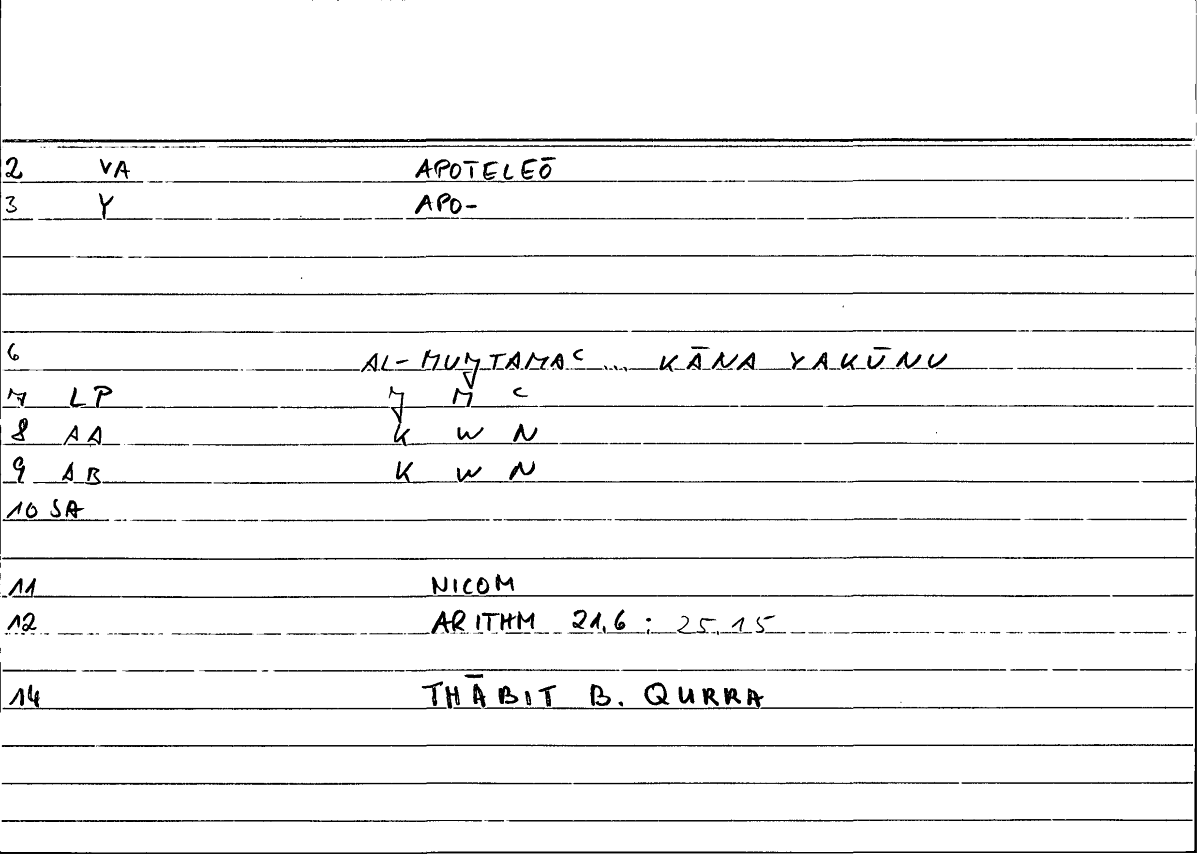 2 VA APOTELEŌ
3 Y APO-
6 AL-MUǦTAMAʿ ... KĀNA YAKŪNU
7 LP Ǧ M ʿ
8 AA K W N
9 AB K W N
10 SA
11 NICOM
12 ARITHM 21,6 : 25,15
14 THĀBIT B. QURRA